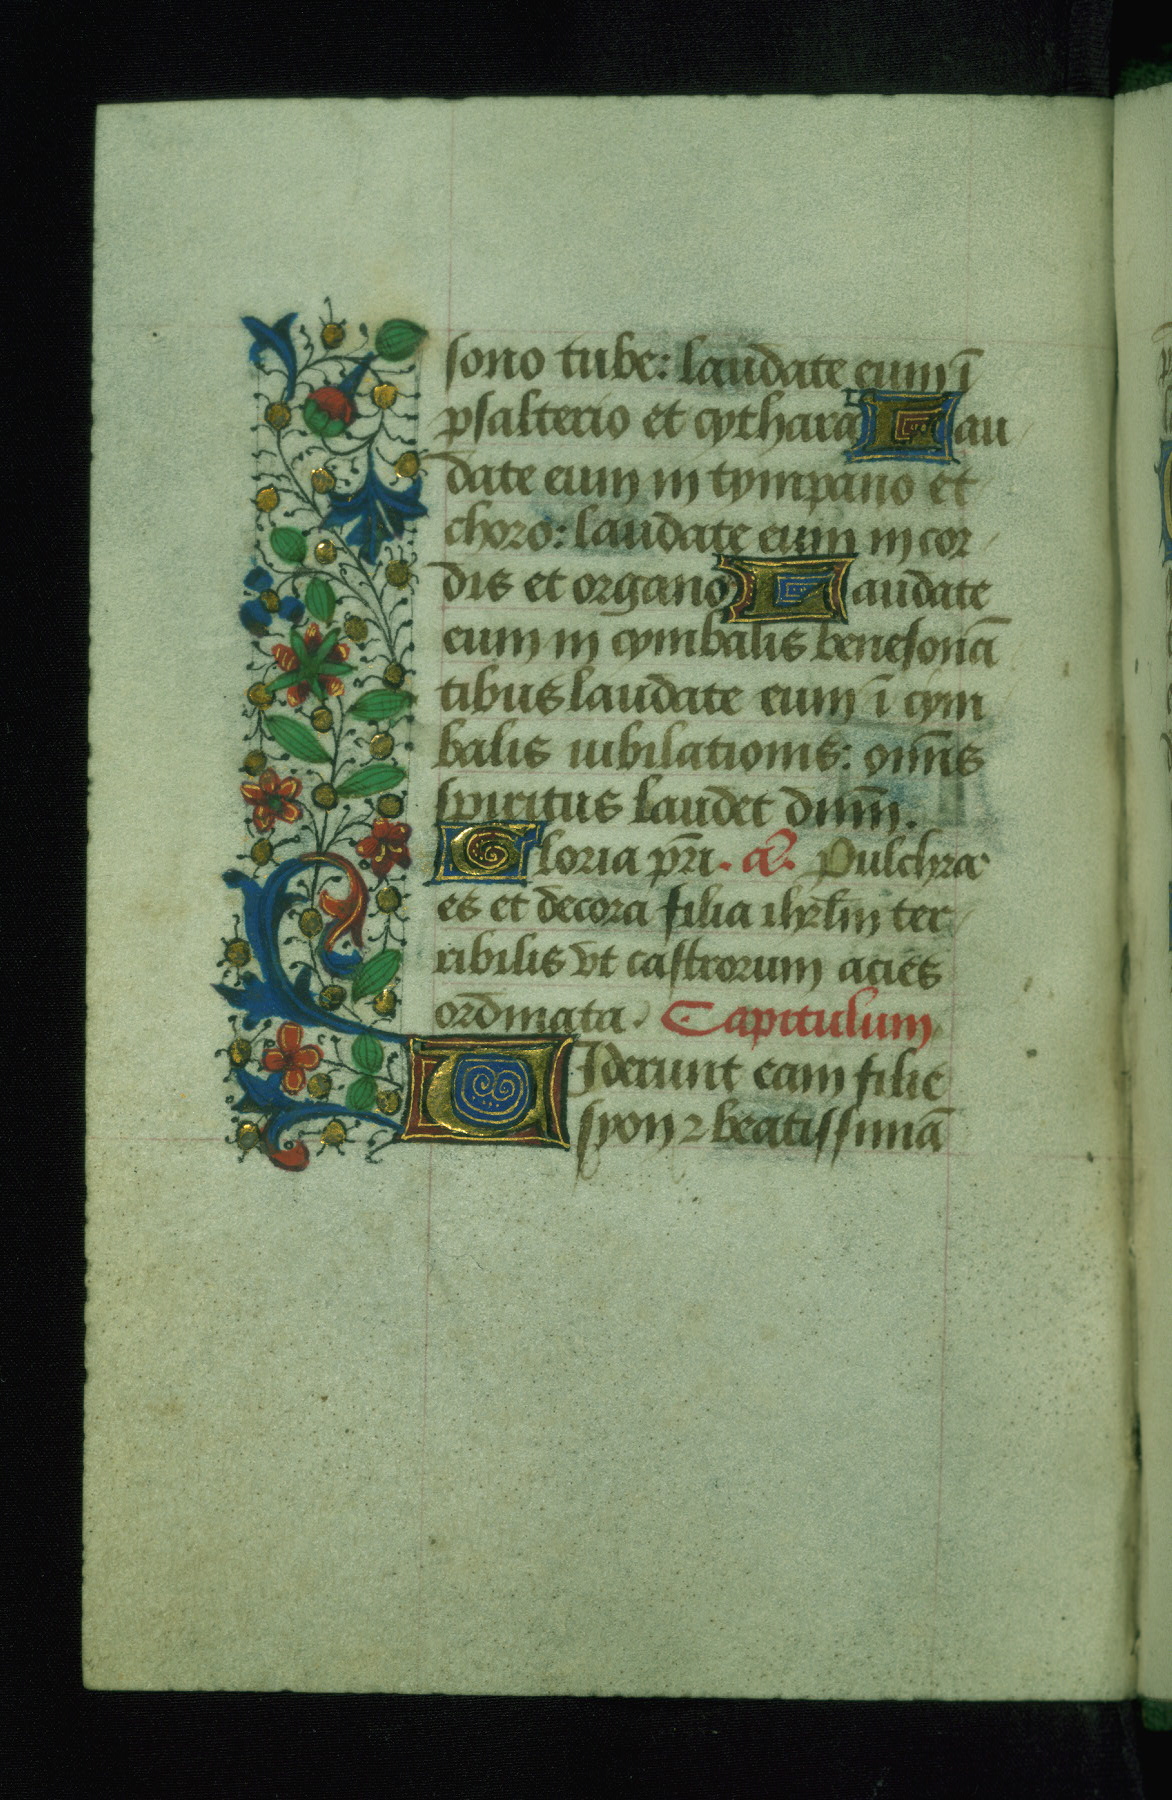 sono tube: laudate eum ī
psalterio et cythara Lau
date eum in tympano et
choro: laudate eum in cor
dis et organo Laudate
eum in cymbalis benesonā
tibus laudate eum ī cym
balis iubilationis: om̄is
spiritus laudet dnm̄.
Gloria pr̄i. a᷒. Pulchra
es et decora filia ihrl̄m ter
ribilis vt castrorum acies
ordinata. Capitulum
Uiderunt eam filie
syon ⁊ beatissimā